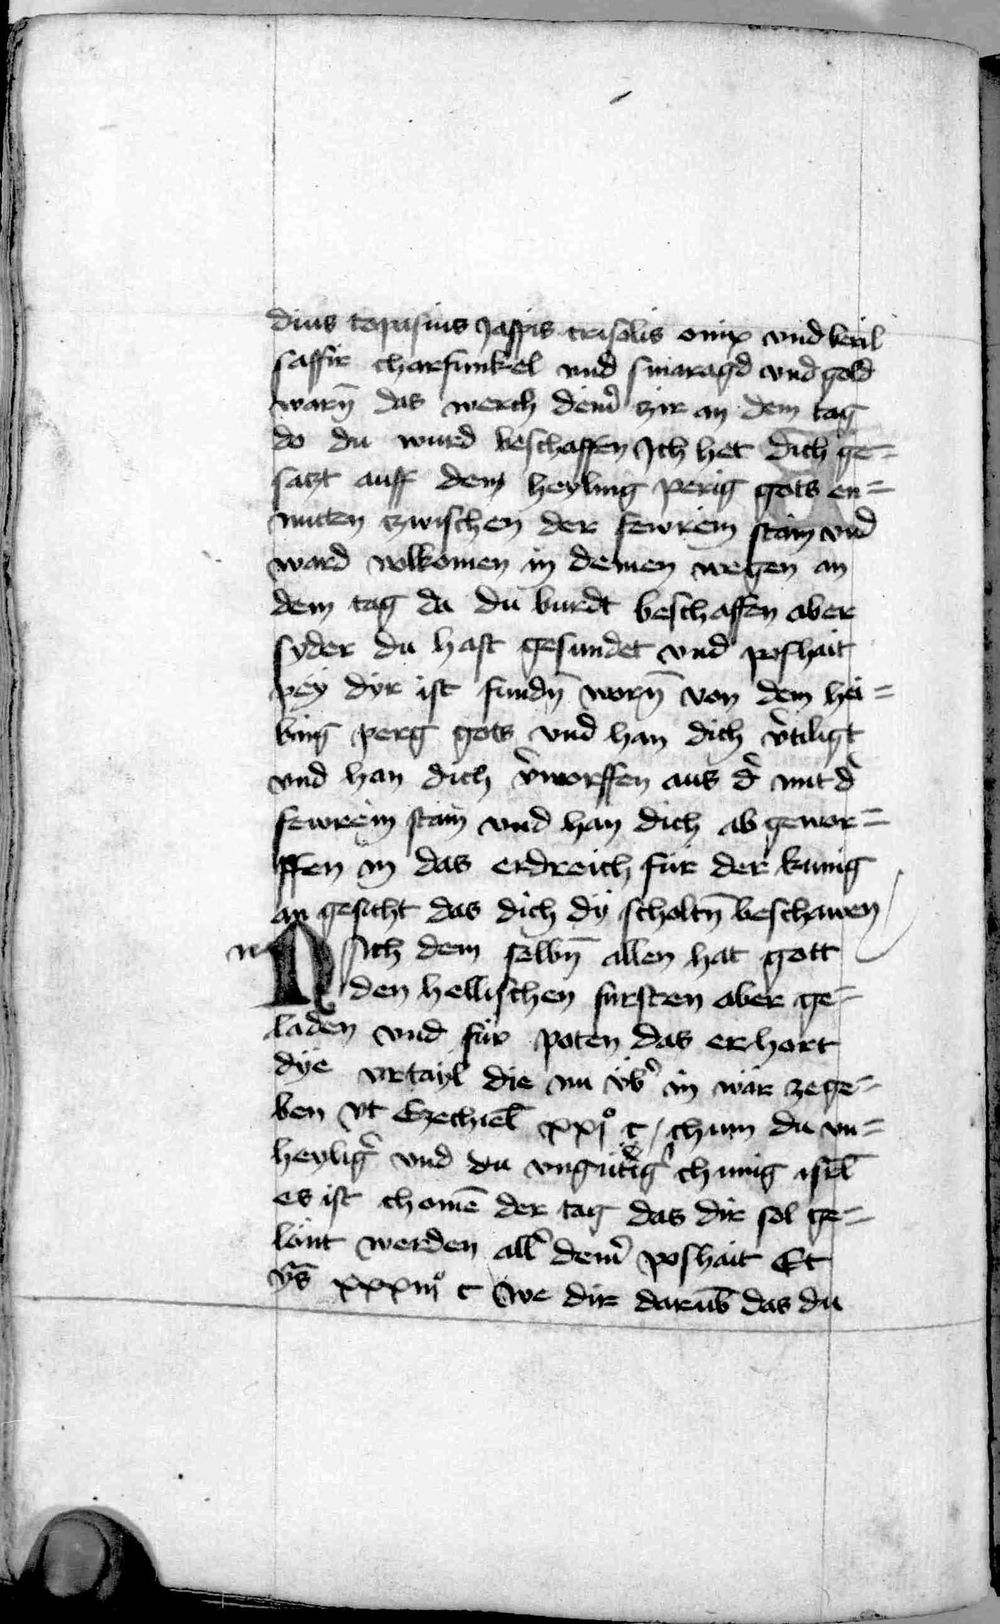 dius topasius Jaspis crisolis onix vnd beril
saffir charfunkel vnd smaragd vnd gold
warn̄ das werch deinˀ zir an dem tag
do du wurd beschaffen Ich het dich ge=
satzt auff dem heyling perig gots en=
mitten zwischen der fewrein stain vnd
ward volkomen in deinen wegen an
dem tag da du burdt beschaffen aber
syder du hast gesundet vnd poshait
pey dyr ist fundn̄ worn̄ von dem hei=
ling perg gots vnd han dich v̉tiligt
vnd han dich v̉worffen aus d̉ mit d̉
fewrein stain vnd han dich ab gewor=
ffen in das erdreich für der kunig
an gesicht das dich dy scholtn̄ beschawen
n Nach dem selbn̄ allen hat gott
den hellischen fursten aber ge=
laden vnd für poten das er hort
dye vrtayl die nu vb̉ in wär ze ge=
ben vt Ezechiel̄ xxjͦ c / chum du vn=
heyligˀ vnd du vngütigˀ chunig isrl̄
es ist chomē der tag das dir sol ge=
lönt werden allˀ deinˀ poshait Et
ys̄ xxxiijͦ c we dir darub̄ das du